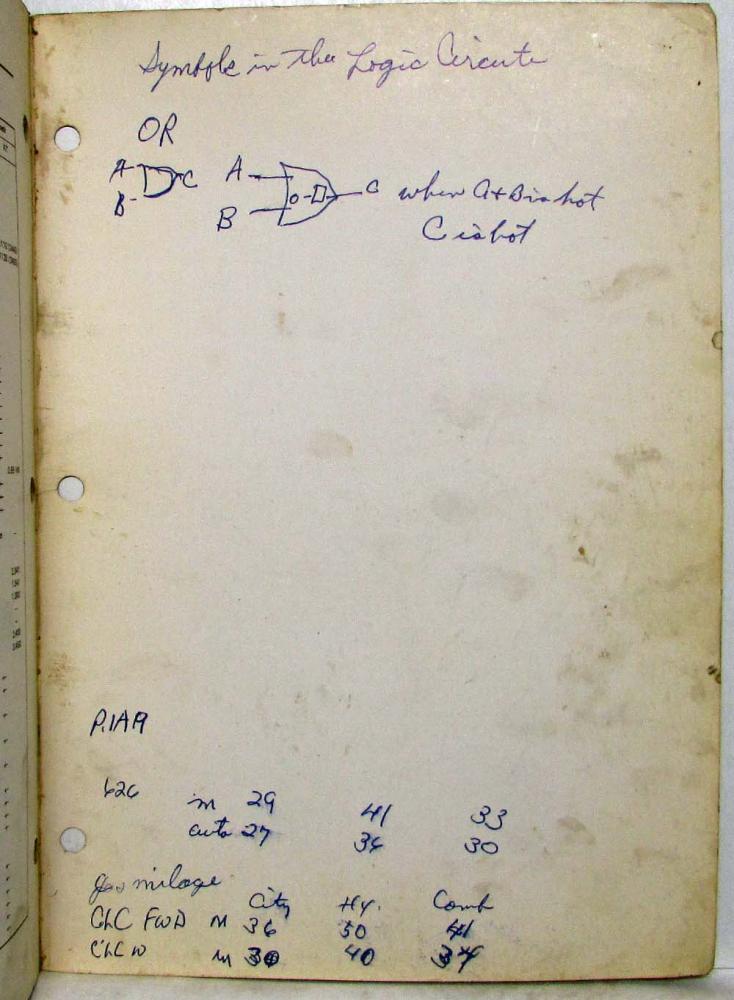 Symbols in the Logic Circuits
OR
A C A C when A + B is hot
B B C is hot
626
m 29 41 33
auto 27 36 30
gas milage
City Hy. Comb
GLC FWD M 36 50 41
GLC W M 30 40 34